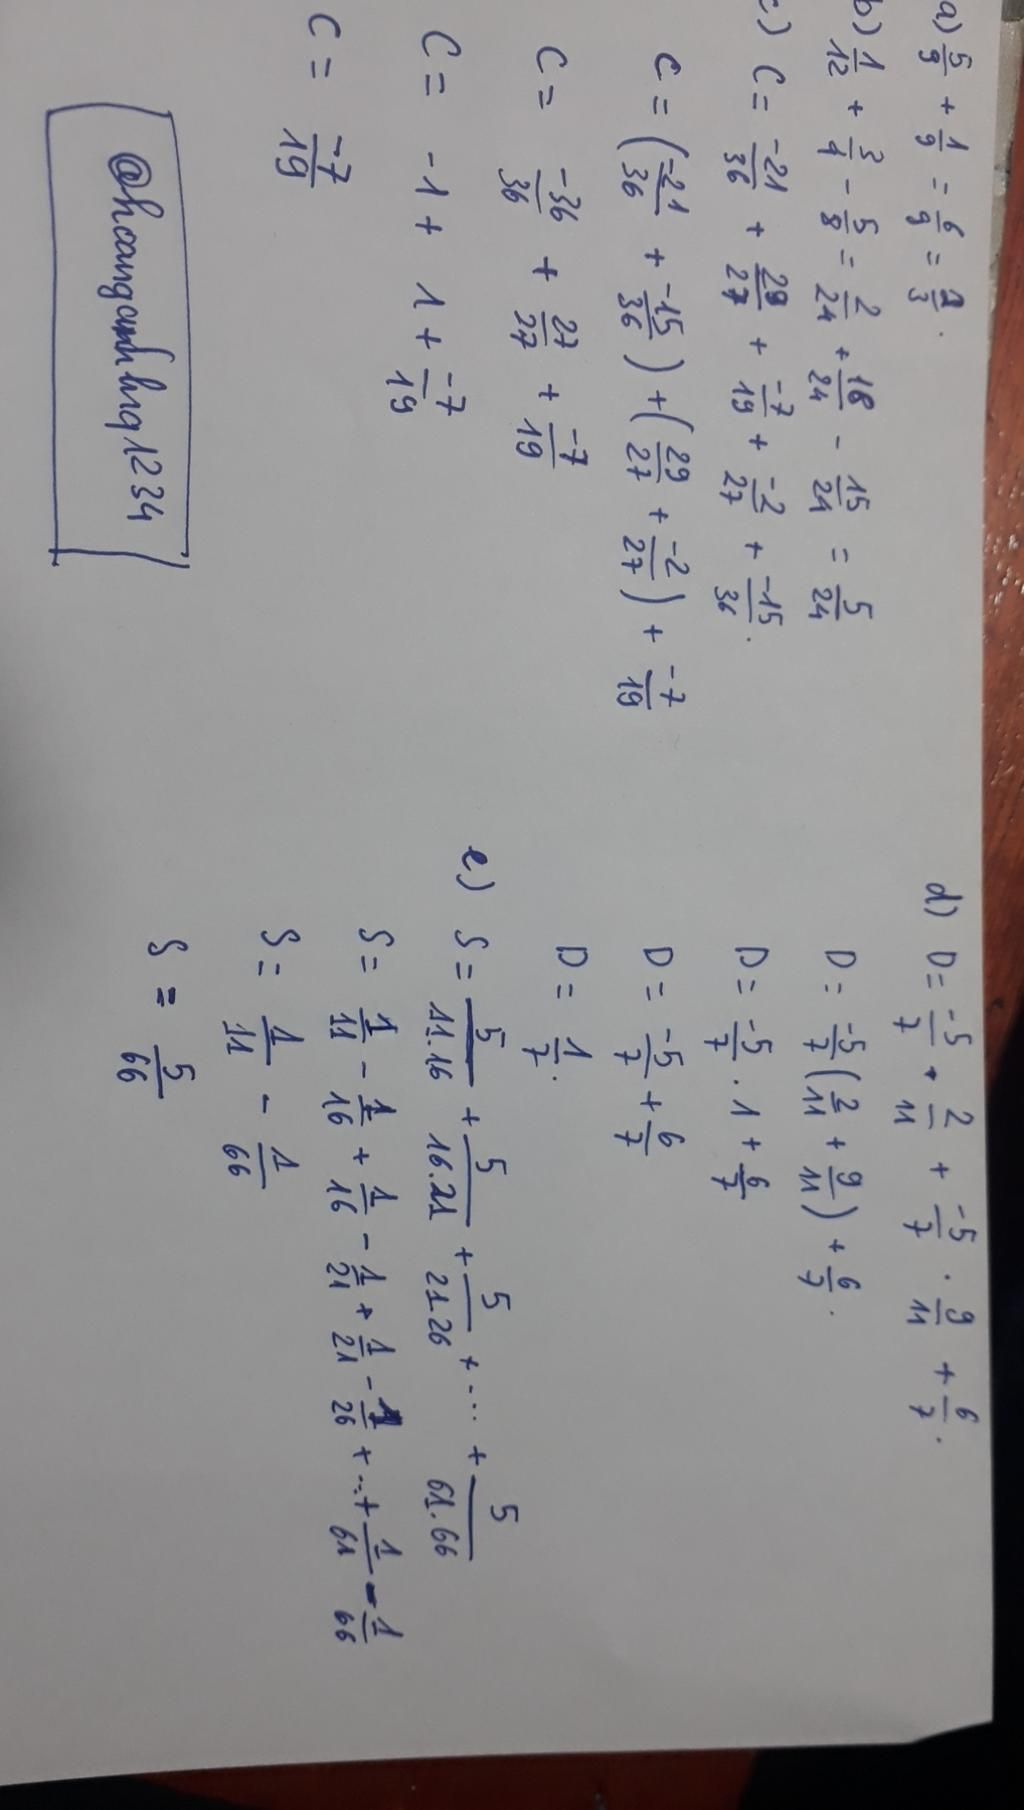 a) 5/9 + 1/9 = 6/9 = 2/3.
b) 1/12 + 3/4 - 5/8 = 2/24 + 18/24 - 15/24 = 5/24
c) C = -21/36 + 29/27 + -7/19 + -2/27 + -15/36.
C = (-21/36 + -15/36) + (29/27 + -2/27) + -7/19
C = -36/36 + 27/27 + -7/19
C = -1 + 1 + -7/19
C = -7/19
d) D = -5/7 . 2/11 + -5/7 . 9/11 + 6/7.
D = -5/7 (2/11 + 9/11) + 6/7.
D = -5/7 . 1 + 6/7
D = -5/7 + 6/7
D = 1/7.
e) S = 5/11.16 + 5/16.21 + 5/21.26 + ... + 5/61.66
S = 1/11 - 1/16 + 1/16 - 1/21 + 1/21 - 1/26 + ... + 1/61 - 1/66
S = 1/11 - 1/66
S = 5/66